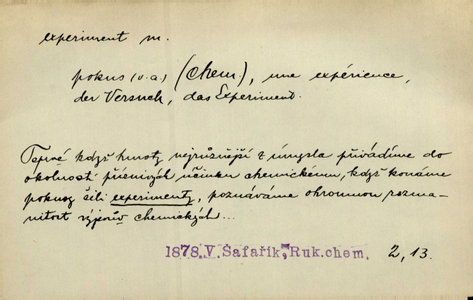 experiment m.
pokus (v. a.) (chem.), une expérience,
der Versuch, das Experiment.
Teprvé když hmoty nejrůznější z úmysla přivádíme do
okolností příznivých účinku chemickému, když konáme
pokusy čili experimenty, poznáváme ohromnou rozma-
nitost výjevův chemických...
1878. V. Šafařík, Ruk. chem. 2, 13.